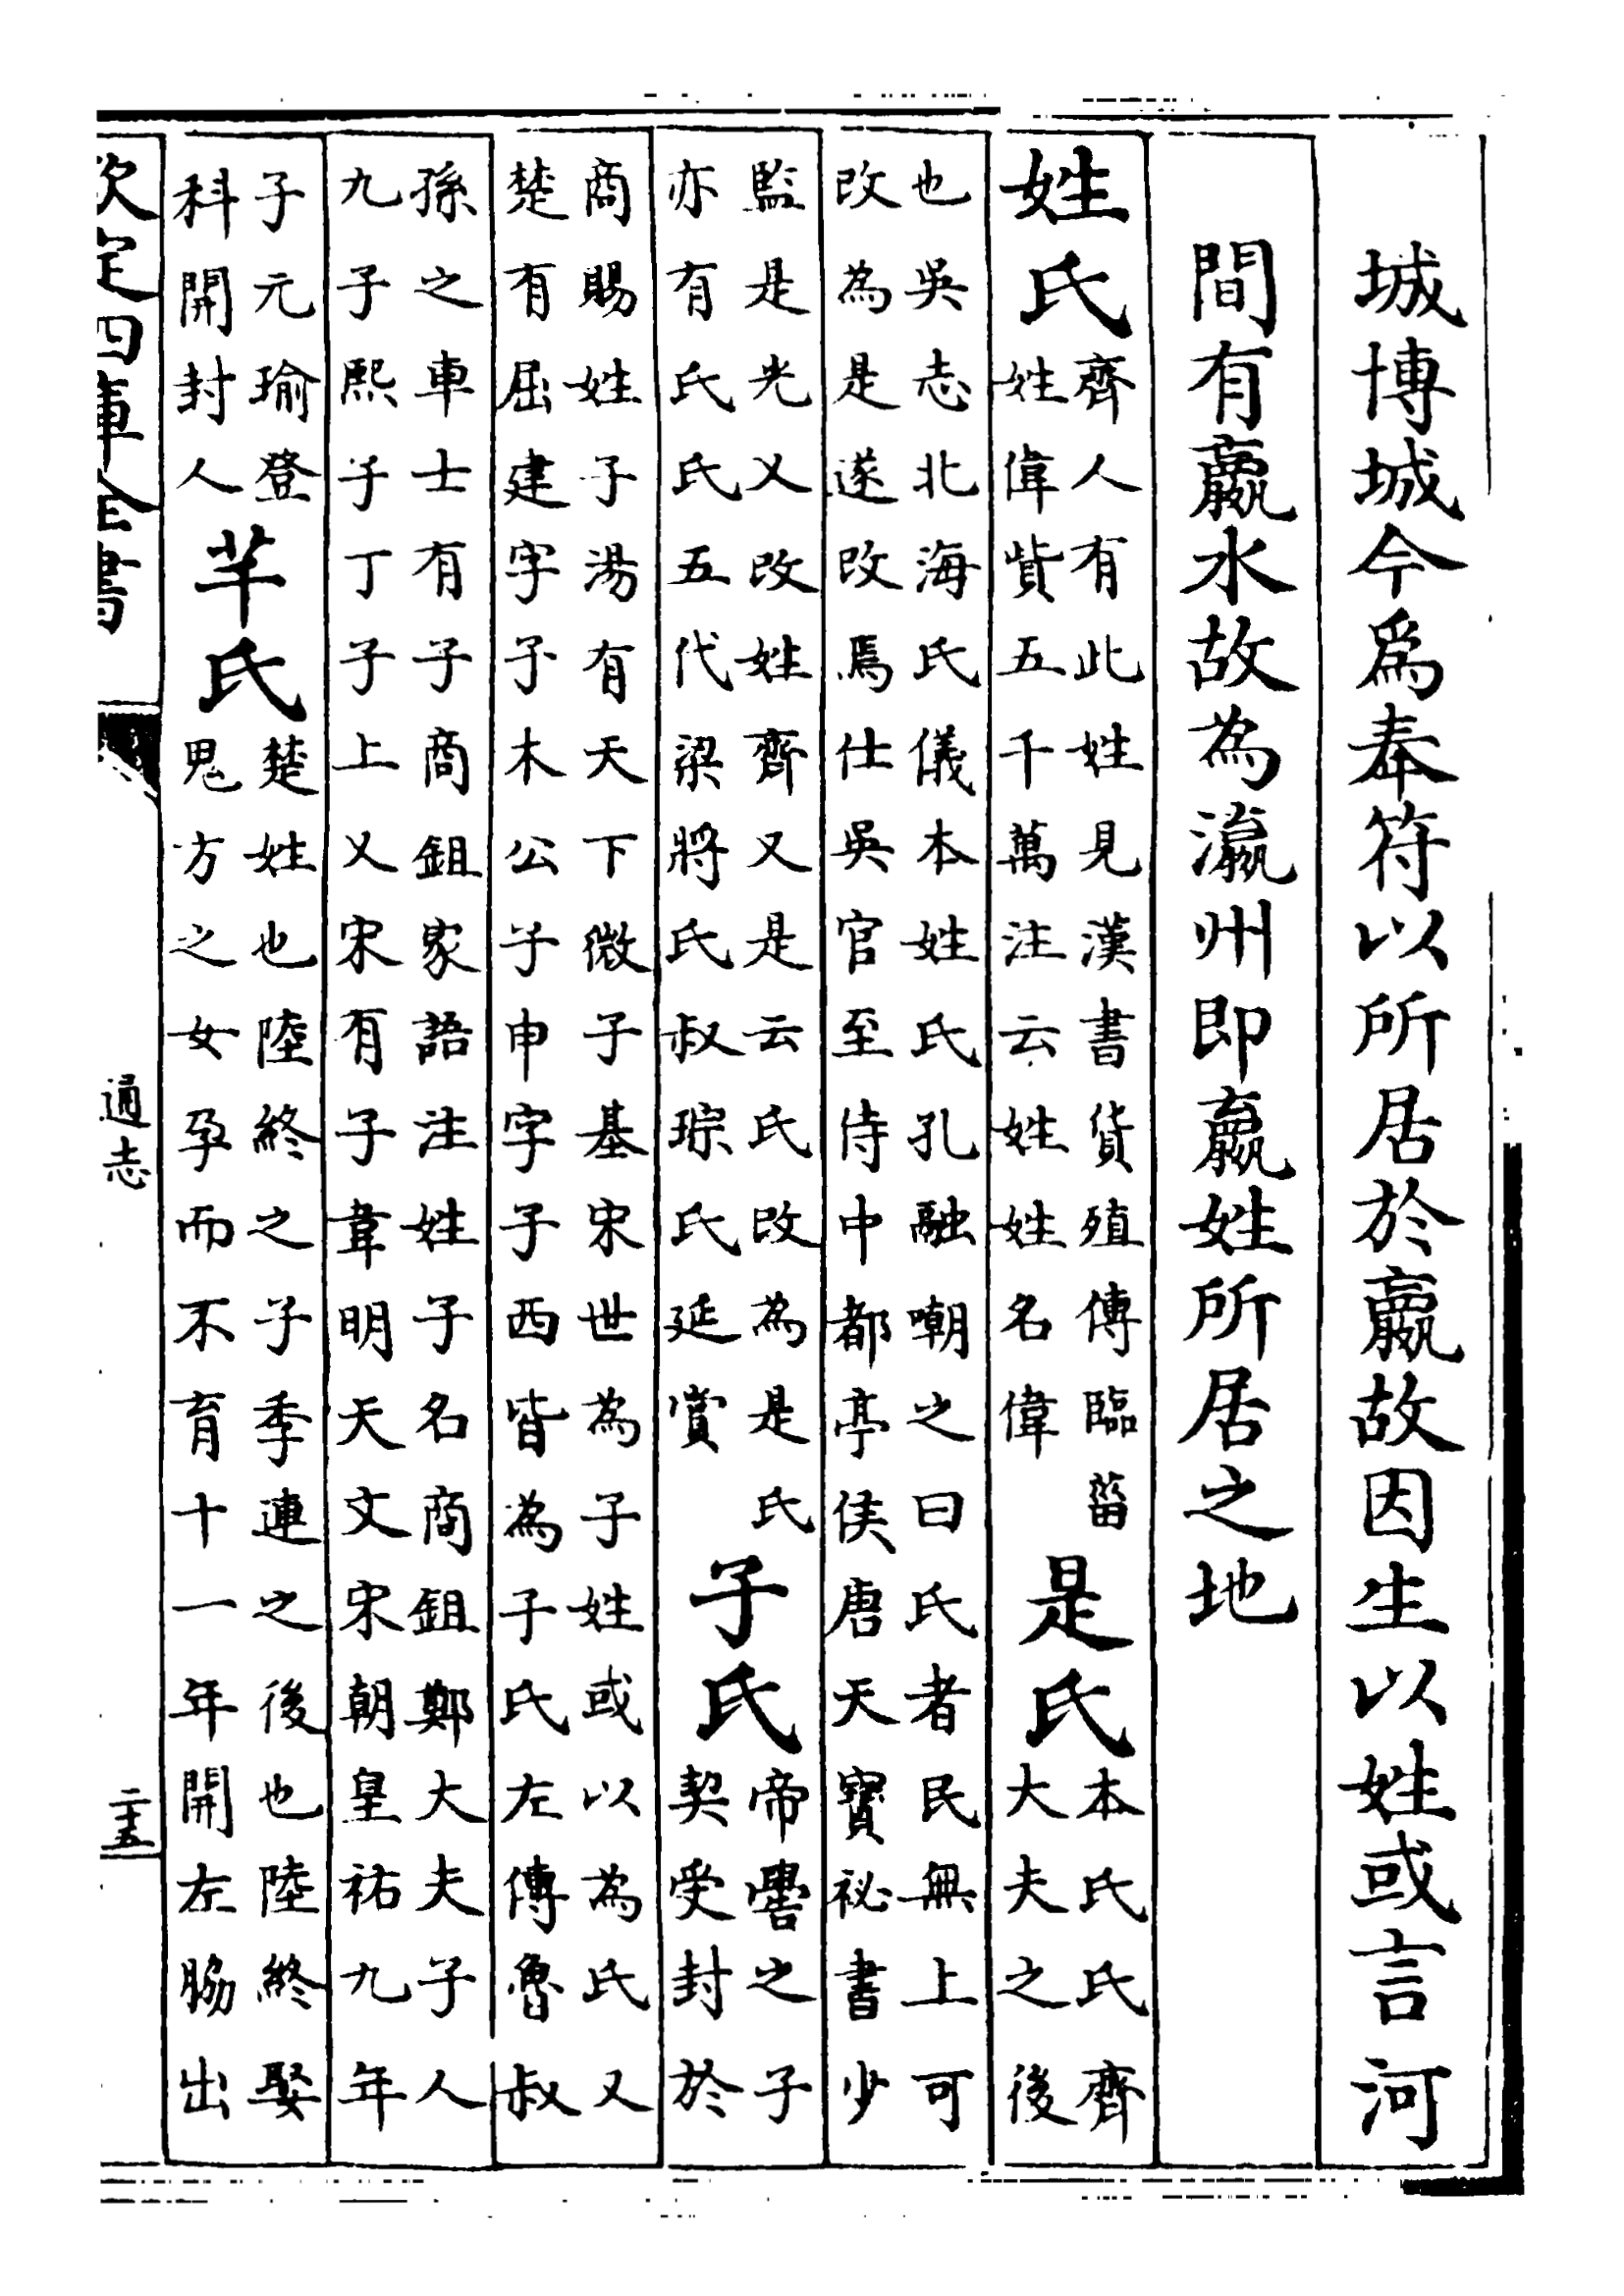 城博城今爲奉符以所居於嬴故因生以姓或言河
間有嬴水故為瀛州即嬴姓所居之地
姓氏齊人有此姓見漢書貨殖傳臨菑
姓偉貲五千萬注云姓姓名偉
是氏本氏氏齊
大夫之後
也吳志北海氏儀本姓氏孔融嘲之曰氏者民無上可
改為是遂改焉仕吳官至侍中都亭侯唐天寶祕書少
監是光乂改姓齊又是云氏改為是氏
亦有氏氏五代梁將氏叔琮氏延賞
子氏帝嚳之子
契受封於
商賜姓子湯有天下微子基宋世為子姓或以為氏又
楚有屈建字子木公子申字子西皆為子氏左傳魯叔
孫之車士有子商鉏家語注姓子名商鉏鄭大夫子人
九子熙子丁子上又宋有子韋明天文宋朝皇祐九年
子元瑜登
科開封人
芊氏楚姓也陸終之子季連之後也陸終娶
鬼方之女孕而不育十一年開左脇出
欽定四庫全書
通志
二十五